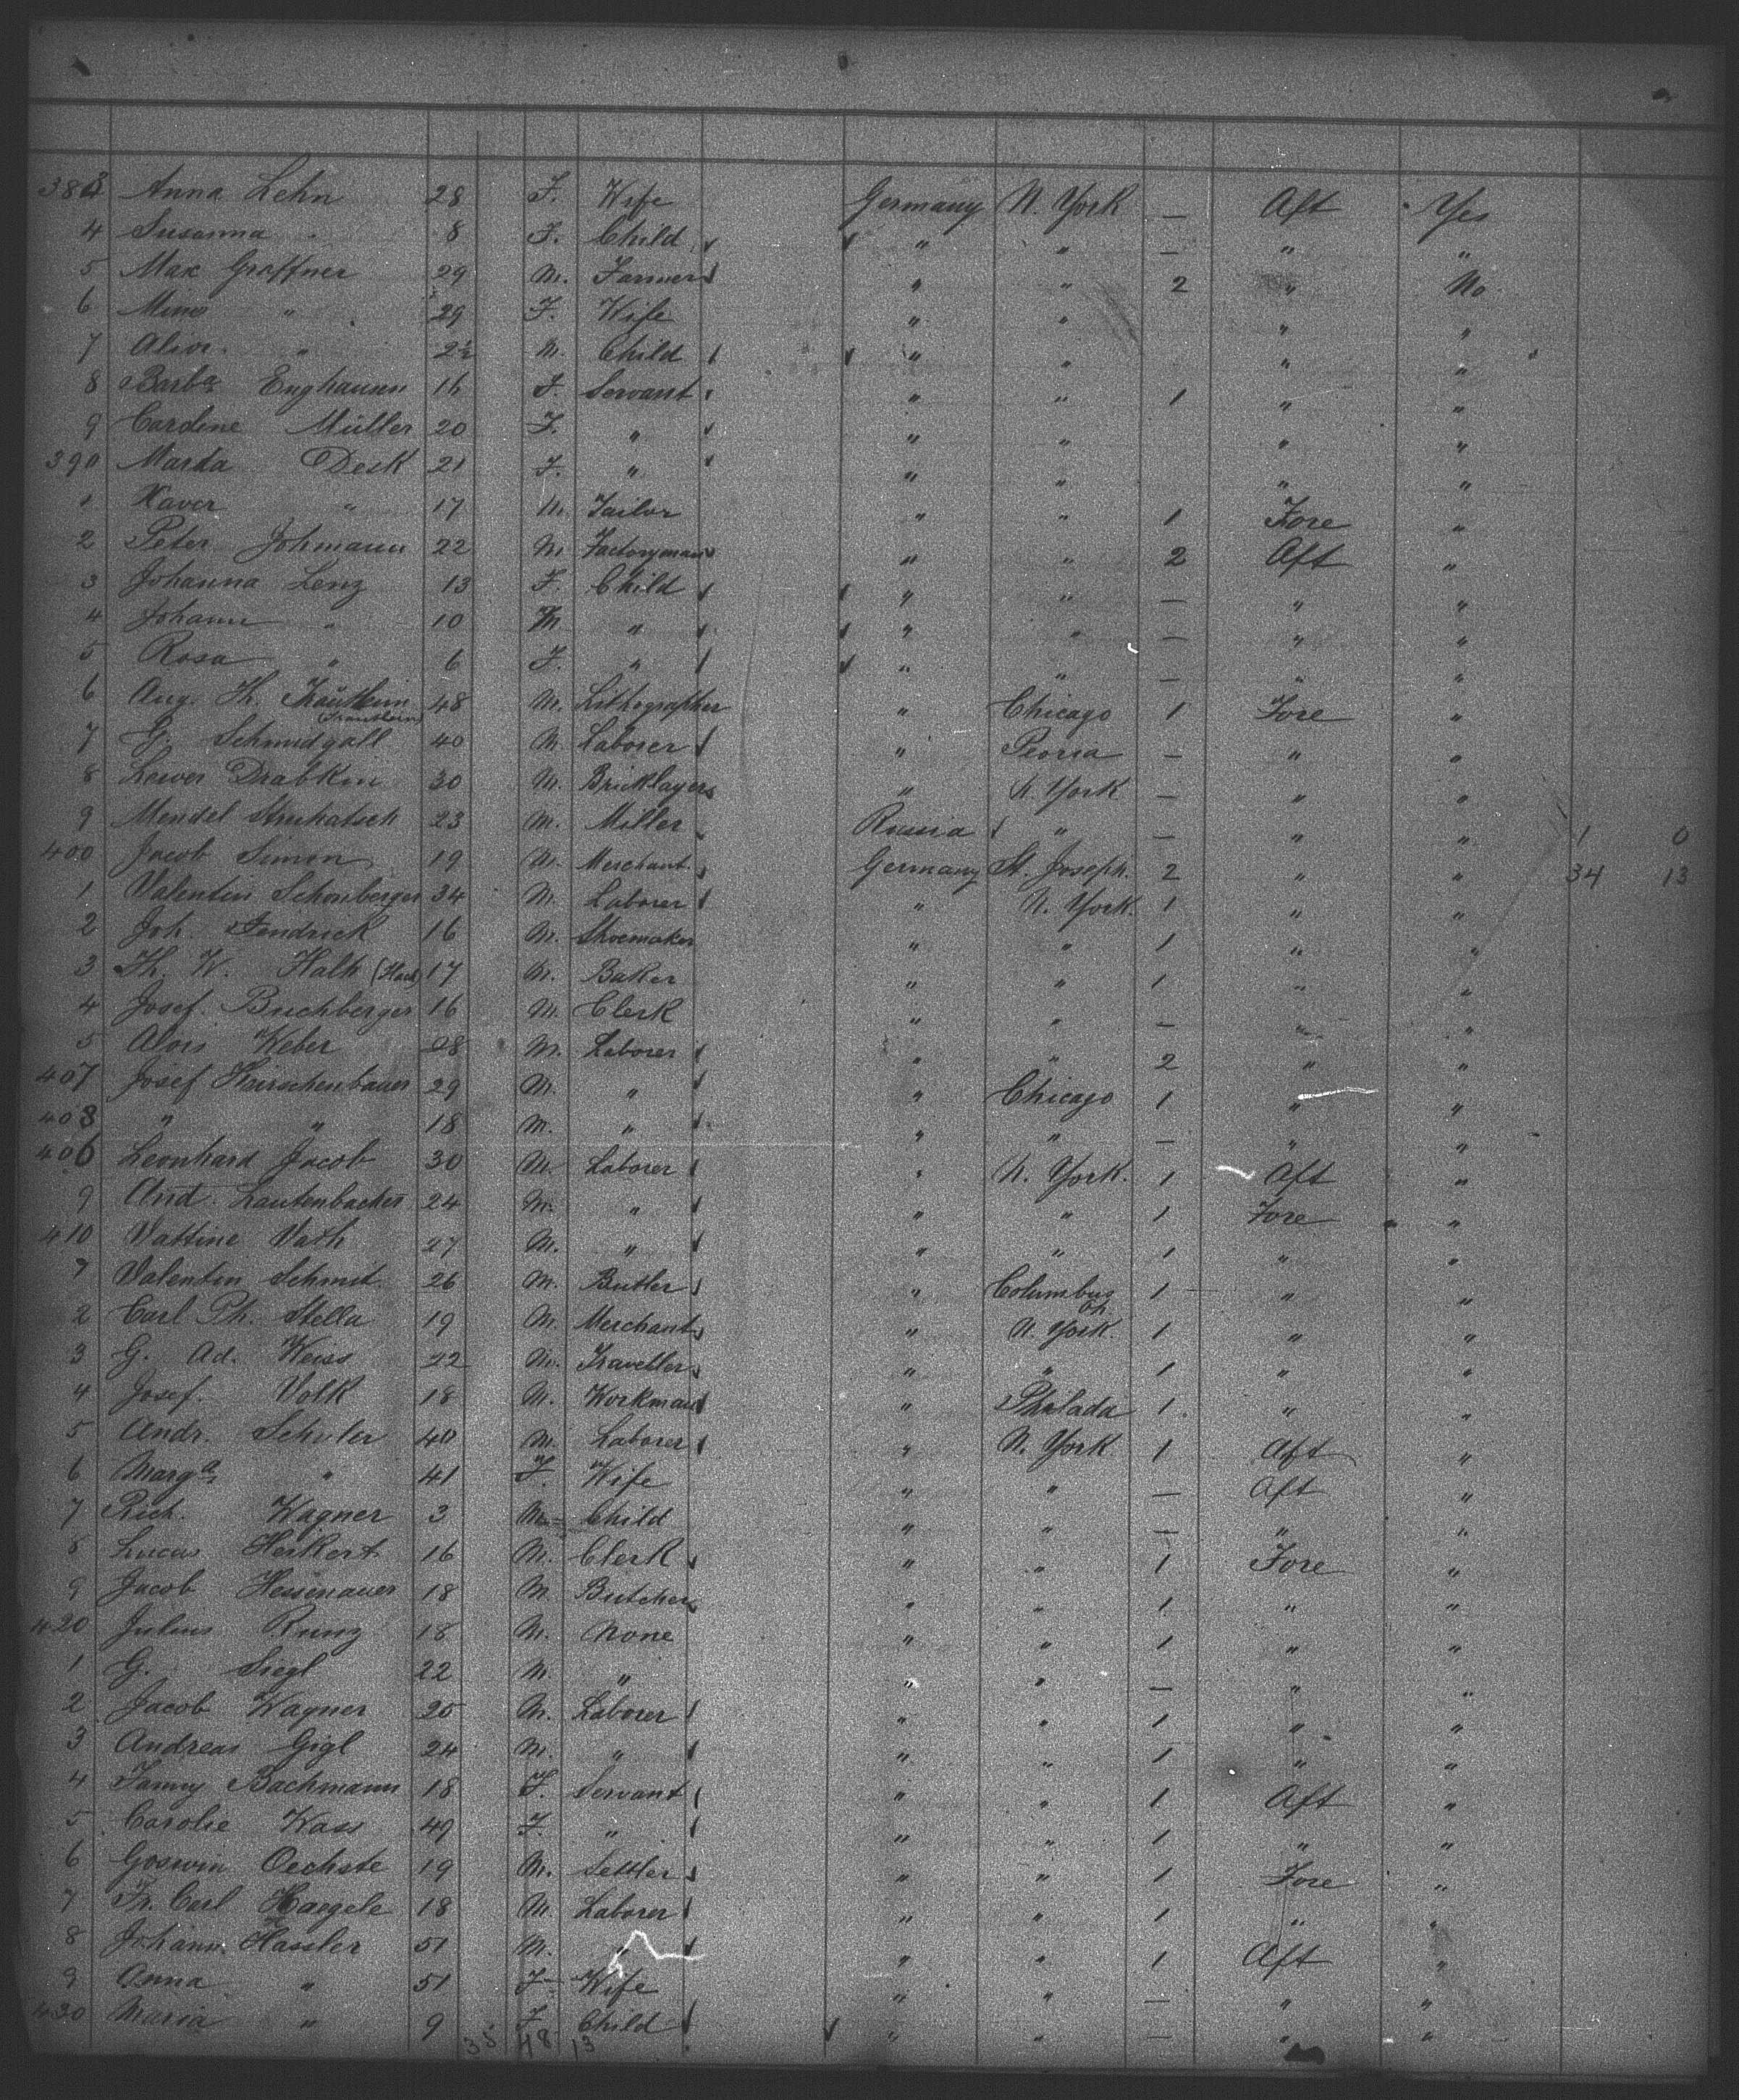 383 Anna Lehn 28 F. Wife Germany N. York — Aft Yes
4 Susanna " 8 F. Child " " — " "
5 Max Graffner 29 M. Farmer " " 2 " No
6 Mina " 29 F. Wife " " " "
7 Alior " 2½ M. Child " " " "
8 Barba Enghausen 16 F. Servant " " 1 " "
9 Caroline Müller 20 F. " " " " "
390 Marda Deck 21 F. " " " " "
1 Xaver " 17 M. Tailor " " 1 Fore "
2 Peter Johmann 22 M. Factoryman " " 2 Aft "
3 Johanna Lenz 13 F. Child " " — " "
4 Johann " 10 M " " " — " "
5 Rosa " 6 F. " " " — " "
6 Aug. Th. 48 M. Lithographer " Chicago 1 Fore "
7 G. Schmidgall 40 M. Laborer " Peoria — " "
8 Lewer Drabkin 30 M. Bricklayer " N. York — " "
9 Mendel Struhatsch 23 M. Miller Russia " — " " 1 0
400 Jacob Simon 19 M. Merchant Germany St. Joseph. 2 " " 34 13
1 Valentin Schonberger 34 M. Laborer " N. York. 1 " "
2 Joh. Fendrick 16 M. Shoemaker " " 1 " "
3 Th. W. Halh (Hach) 17 M. Baker " " 1 " "
4 Josef. Buchberger 16 M. Clerk " " — " "
5 Alois Keber 28 M. Laborer " " 2 " "
407 Josef Hirschenbauer 29 M. " " Chicago 1 " "
408 " " 18 M. " " " — " "
406 Leonhard Jacob 30 M. Laborer " N. York. 1 Aft "
9 And. Lautenbacher 24 M. " " " 1 Fore "
410 Vattine Vath 27 M. " " " 1 " "
1 Valentin Schmit 26 M. Butler " Columbus Oh 1 " "
2 Carl Ph. Stella 19 M. Merchant " N. York. 1 " "
3 G. Ad. Weiss 22 M. Traveller " " 1 " "
4 Josef. Volk 18 M. Workman " Philada 1 " "
5 Andr. Schuler 40 M. Laborer " N. York 1 Aft "
6 Marga " 41 F. Wife " " — Aft "
7 Rich. Wagner 3 M. Child " " — " "
8 Lucas Herkert 16 M. Clerk " " 1 Fore "
9 Jacob Hessenauer 18 M. Butcher " " 1 " "
420 Julius Runz 18 M. None " " 1 " "
1 G. Siegl 22 M. " " " — " "
2 Jacob Wagner 25 M. Laborer " " 1 " "
3 Andreas Gigl 24 M. " " " 1 " "
4 Fanny Bachmann 18 F. Servant " " 1 Aft "
5 Carolie Kass 49 F. " " " 1 " "
6 Goswin Oechste 19 M. Settler " " 1 Fore "
7 Fr. Carl Haegele 18 M. Laborer " " 1 " "
8 Johann Hassler 51 M. " " " 1 Aft "
9 Anna " 51 F. Wife " " — " "
430 Maria " 9 F. Child " " — " "
35 48 13